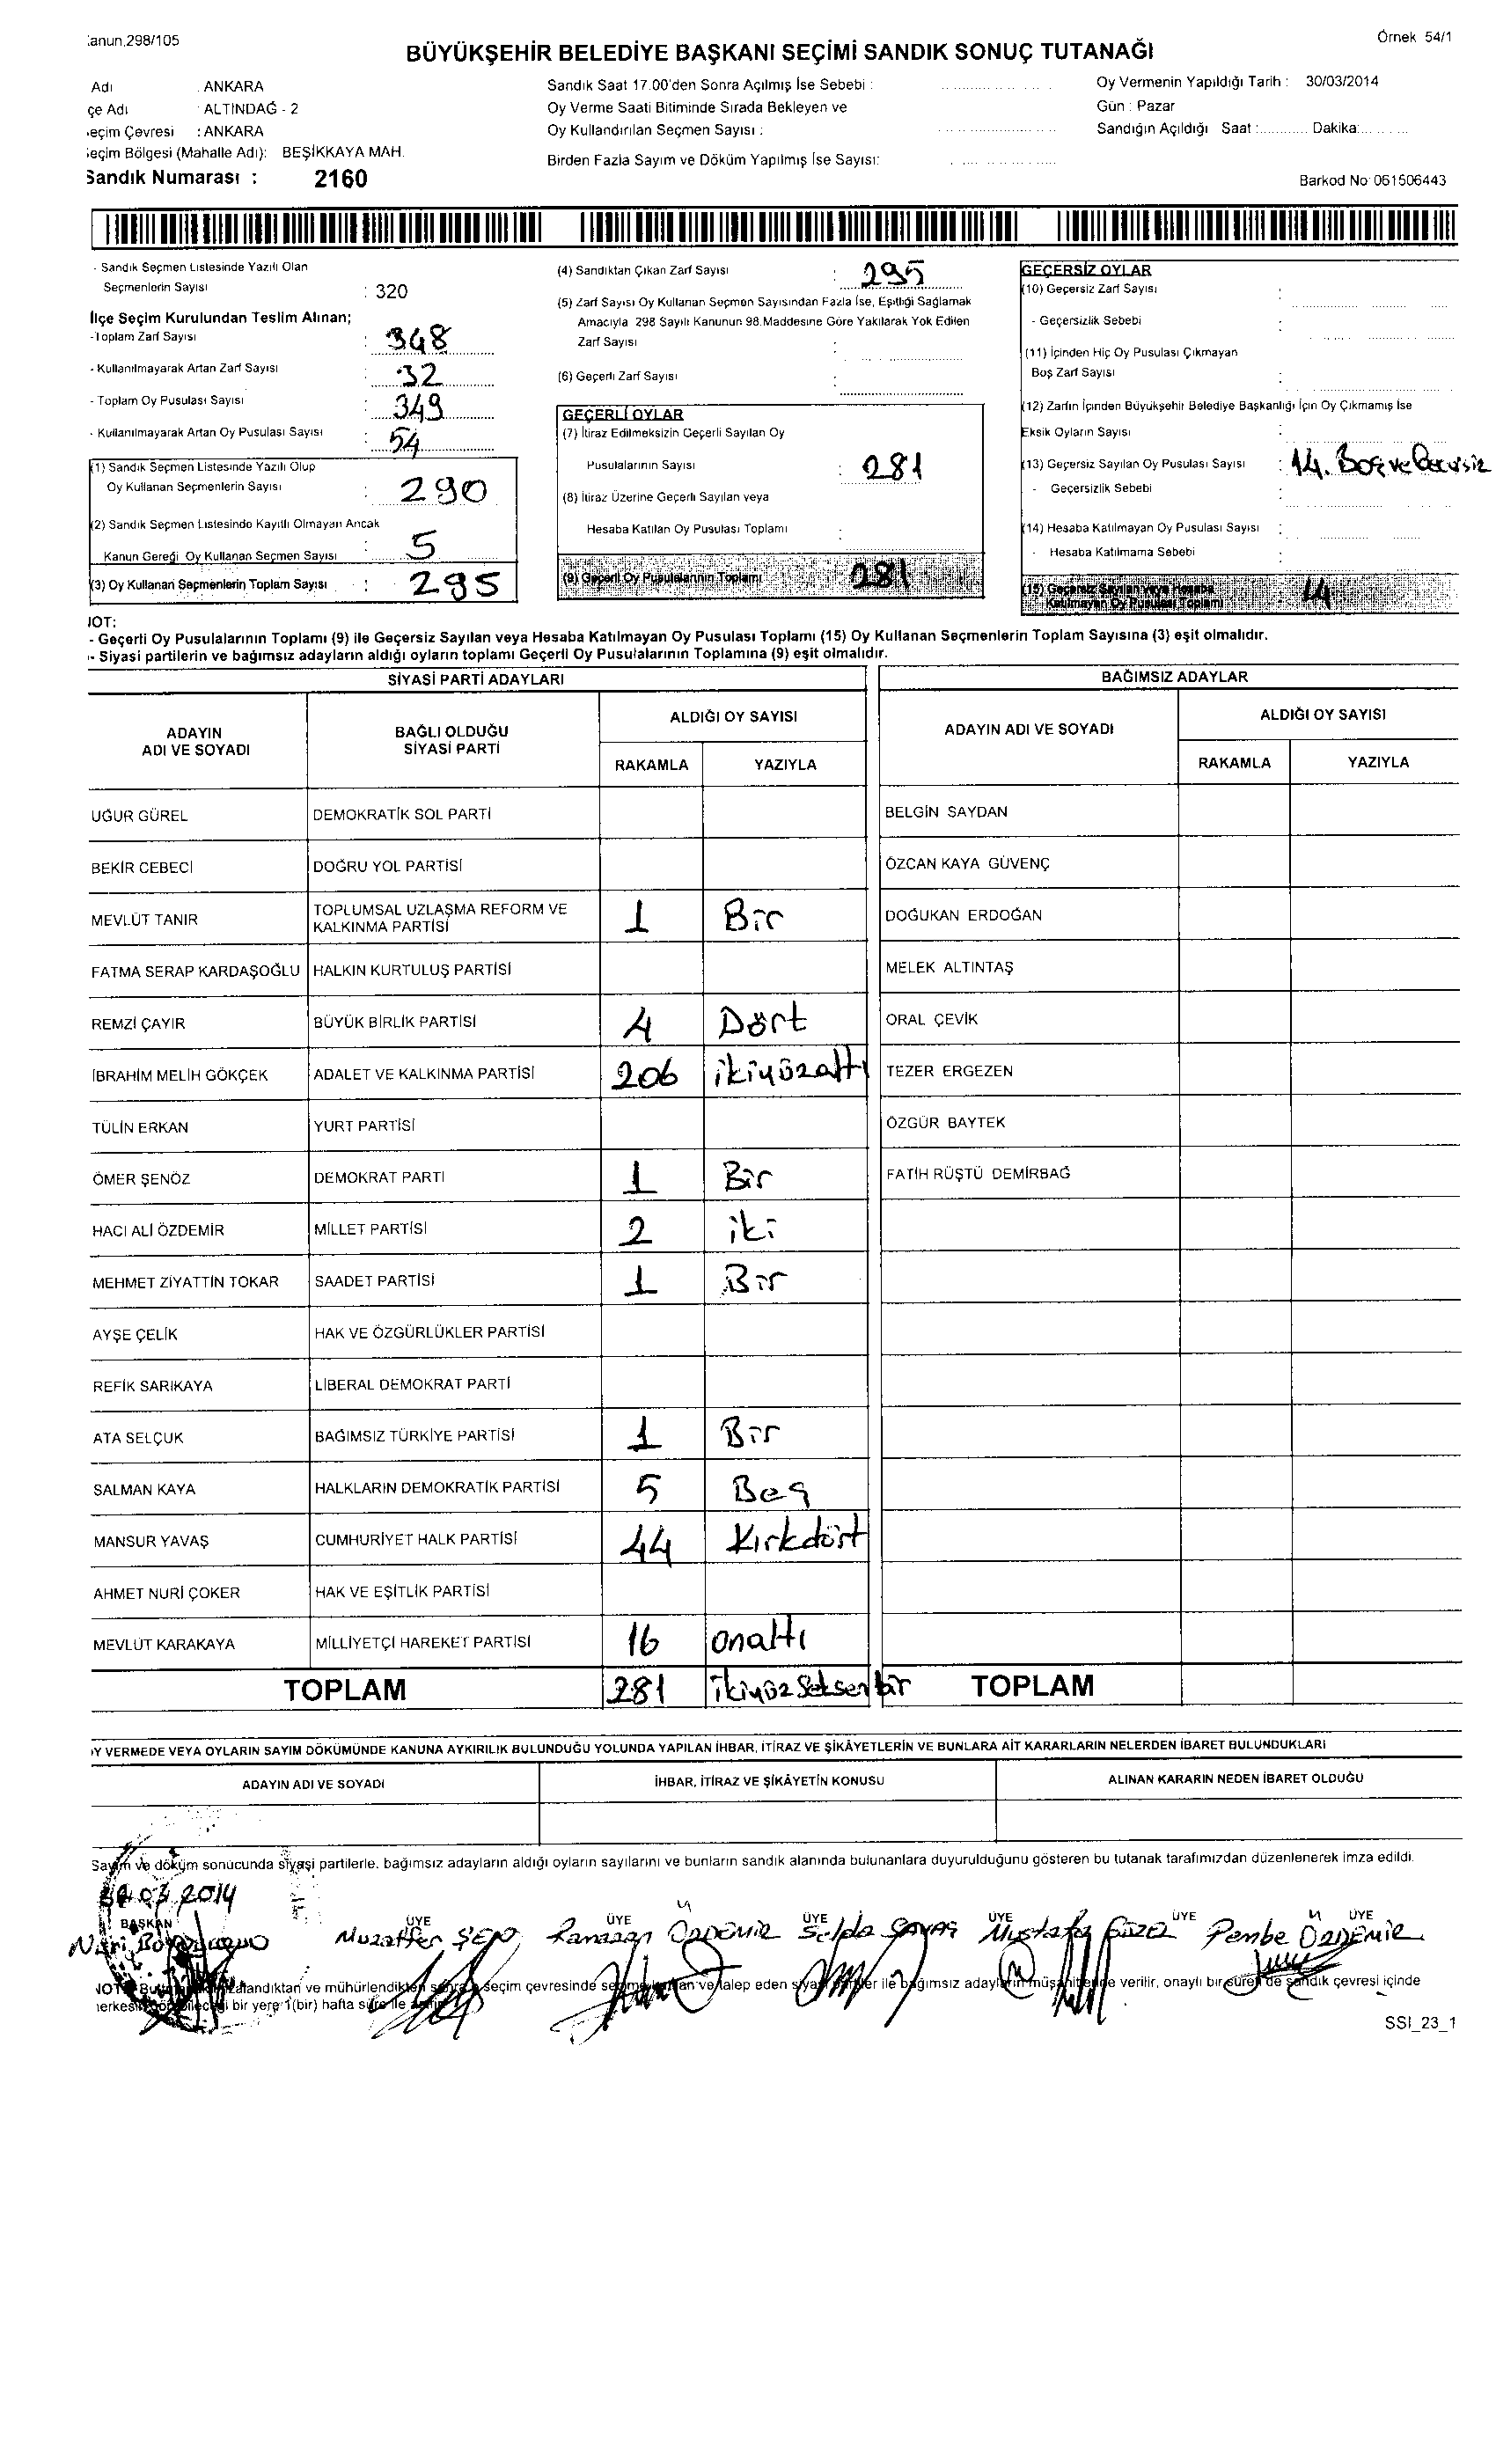 Kanun.298/105
Örnek 54/1
BÜYÜKŞEHİR BELEDİYE BAŞKANI SEÇİMİ SANDIK SONUÇ TUTANAĞI
Adı : ANKARA
çe Adı : ALTINDAĞ - 2
eçim Çevresi : ANKARA
eçim Bölgesi (Mahalle Adı): BEŞİKKAYA MAH.
Sandık Numarası : 2160
Sandık Saat 17.00'den Sonra Açılmış İse Sebebi :
Oy Verme Saati Bitiminde Sırada Bekleyen ve
Oy Kullandırılan Seçmen Sayısı :
Birden Fazla Sayım ve Döküm Yapılmış İse Sayısı:
Oy Vermenin Yapıldığı Tarih : 30/03/2014
Gün : Pazar
Sandığın Açıldığı Saat :............ Dakika:............
Barkod No: 061506443
- Sandık Seçmen Listesinde Yazılı Olan
Seçmenlerin Sayısı : 320
İlçe Seçim Kurulundan Teslim Alınan;
-Toplam Zarf Sayısı : 348
- Kullanılmayarak Artan Zarf Sayısı : 32
- Toplam Oy Pusulası Sayısı : 349
- Kullanılmayarak Artan Oy Pusulası Sayısı : 54
(1) Sandık Seçmen Listesinde Yazılı Olup
Oy Kullanan Seçmenlerin Sayısı : 290
(2) Sandık Seçmen Listesinde Kayıtlı Olmayan Ancak
Kanun Gereği Oy Kullanan Seçmen Sayısı : 5
(3) Oy Kullanan Seçmenlerin Toplam Sayısı : 295
(4) Sandıktan Çıkan Zarf Sayısı : 295
(5) Zarf Sayısı Oy Kullanan Seçmen Sayısından Fazla İse, Eşitliği Sağlamak
Amacıyla 298 Sayılı Kanunun 98.Maddesine Göre Yakılarak Yok Edilen
Zarf Sayısı :
(6) Geçerli Zarf Sayısı :
GEÇERLİ OYLAR
(7) İtiraz Edilmeksizin Geçerli Sayılan Oy
Pusulalarının Sayısı : 281
(8) İtiraz Üzerine Geçerli Sayılan veya
Hesaba Katılan Oy Pusulası Toplamı :
(9) Geçerli Oy Pusulalarının Toplamı 281
GEÇERSİZ OYLAR
(10) Geçersiz Zarf Sayısı :
- Geçersizlik Sebebi :
(11) İçinden Hiç Oy Pusulası Çıkmayan
Boş Zarf Sayısı :
(12) Zarfın İçinden Büyükşehir Belediye Başkanlığı İçin Oy Çıkmamış İse
Eksik Oyların Sayısı :
(13) Geçersiz Sayılan Oy Pusulası Sayısı : 14. Boş ve Geçersiz
- Geçersizlik Sebebi :
(14) Hesaba Katılmayan Oy Pusulası Sayısı :
- Hesaba Katılmama Sebebi :
(15) Geçersiz Sayılan veya Hesaba
Katılmayan Oy Pusulası Toplamı 14
NOT:
- Geçerli Oy Pusulalarının Toplamı (9) ile Geçersiz Sayılan veya Hesaba Katılmayan Oy Pusulası Toplamı (15) Oy Kullanan Seçmenlerin Toplam Sayısına (3) eşit olmalıdır.
- Siyasi partilerin ve bağımsız adayların aldığı oyların toplamı Geçerli Oy Pusulalarının Toplamına (9) eşit olmalıdır.
SİYASİ PARTİ ADAYLARI
ADAYIN ADI VE SOYADI
BAĞLI OLDUĞU SİYASİ PARTİ
ALDIĞI OY SAYISI
RAKAMLA YAZIYLA
UĞUR GÜREL DEMOKRATİK SOL PARTİ
BEKİR CEBECİ DOĞRU YOL PARTİSİ
MEVLÜT TANIR TOPLUMSAL UZLAŞMA REFORM VE KALKINMA PARTİSİ 1 Bir
FATMA SERAP KARDAŞOĞLU HALKIN KURTULUŞ PARTİSİ
REMZİ ÇAYIR BÜYÜK BİRLİK PARTİSİ 4 Dört
İBRAHİM MELİH GÖKÇEK ADALET VE KALKINMA PARTİSİ 206 ikiyüzaltı
TÜLİN ERKAN YURT PARTİSİ
ÖMER ŞENÖZ DEMOKRAT PARTİ 1 Bir
HACI ALİ ÖZDEMİR MİLLET PARTİSİ 2 iki
MEHMET ZİYATTİN TOKAR SAADET PARTİSİ 1 Bir
AYŞE ÇELİK HAK VE ÖZGÜRLÜKLER PARTİSİ
REFİK SARIKAYA LİBERAL DEMOKRAT PARTİ
ATA SELÇUK BAĞIMSIZ TÜRKİYE PARTİSİ 1 Bir
SALMAN KAYA HALKLARIN DEMOKRATİK PARTİSİ 5 Beş
MANSUR YAVAŞ CUMHURİYET HALK PARTİSİ 44 Kırkdört
AHMET NURİ ÇOKER HAK VE EŞİTLİK PARTİSİ
MEVLÜT KARAKAYA MİLLİYETÇİ HAREKET PARTİSİ 16 onaltı
TOPLAM 281 ikiyüz seksen bir
BAĞIMSIZ ADAYLAR
ADAYIN ADI VE SOYADI
ALDIĞI OY SAYISI
RAKAMLA YAZIYLA
BELGİN SAYDAN
ÖZCAN KAYA GÜVENÇ
DOĞUKAN ERDOĞAN
MELEK ALTINTAŞ
ORAL ÇEVİK
TEZER ERGEZEN
ÖZGÜR BAYTEK
FATİH RÜŞTÜ DEMİRBAĞ
TOPLAM
OY VERMEDE VEYA OYLARIN SAYIM DÖKÜMÜNDE KANUNA AYKIRILIK BULUNDUĞU YOLUNDA YAPILAN İHBAR, İTİRAZ VE ŞİKÂYETLERİN VE BUNLARA AİT KARARLARIN NELERDEN İBARET BULUNDUKLARI
ADAYIN ADI VE SOYADI İHBAR, İTİRAZ VE ŞİKÂYETİN KONUSU ALINAN KARARIN NEDEN İBARET OLDUĞU
Sayım ve döküm sonucunda siyasi partilerle, bağımsız adayların aldığı oyların sayılarını ve bunların sandık alanında bulunanlara duyurulduğunu gösteren bu tutanak tarafımızdan düzenlenerek imza edildi.
30.03.2014
BAŞKAN ÜYE ÜYE ÜYE ÜYE ÜYE ÜYE
Nuri Muzaffer Ramazan Özdemir Selda Savaş Mustafa Güzel Pembe Özdemir
seçim çevresinde talep eden ile bağımsız adayların müşahitlerine verilir, onaylı bir sureti de sandık çevresi içinde
bir yere 1(bir) hafta süre ile
SSI_23_1